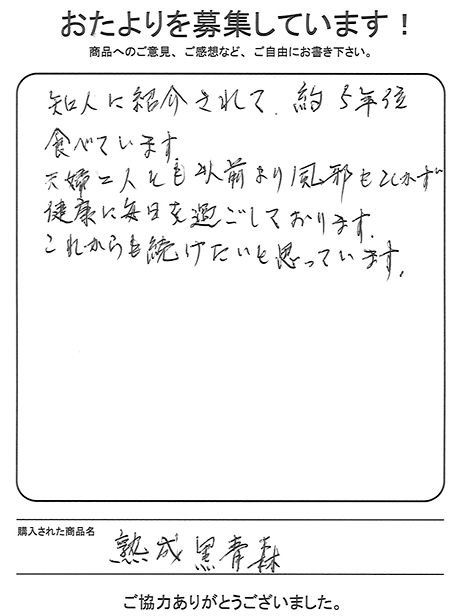 おたよりを募集しています！
商品へのご意見、ご感想など、ご自由にお書き下さい。
知人に紹介されて、約5年位
食べています。
夫婦二人とも以前より風邪もひかず
健康に毎日を過ごしております。
これからも続けたいと思っています。
購入された商品名
熟成黒青森
ご協力ありがとうございました。